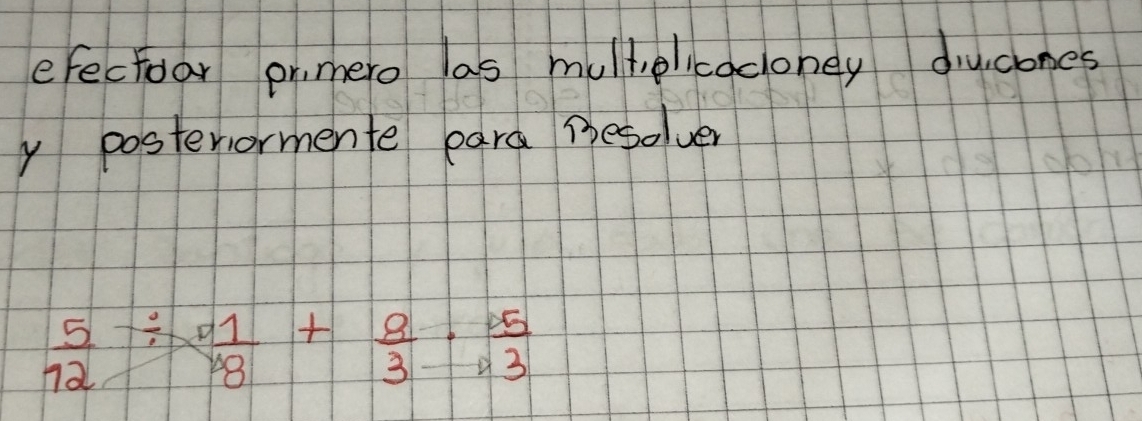 efectoar primero las multiplicacioney diviciones
y posteriormente para Resolver
5/12 ÷ 1/8 + 8/3 · 5/3